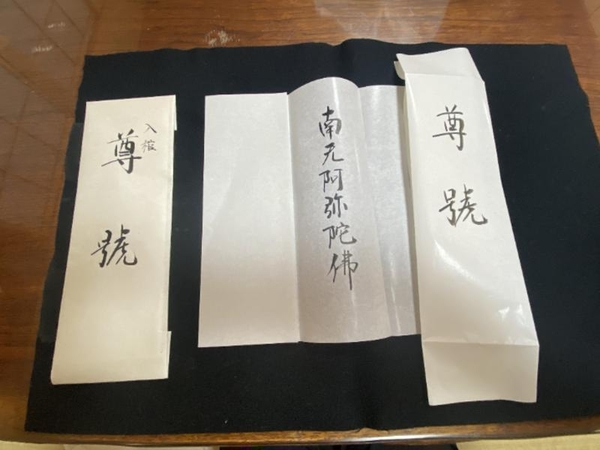 尊號
南无阿弥陀佛
入棺
尊號